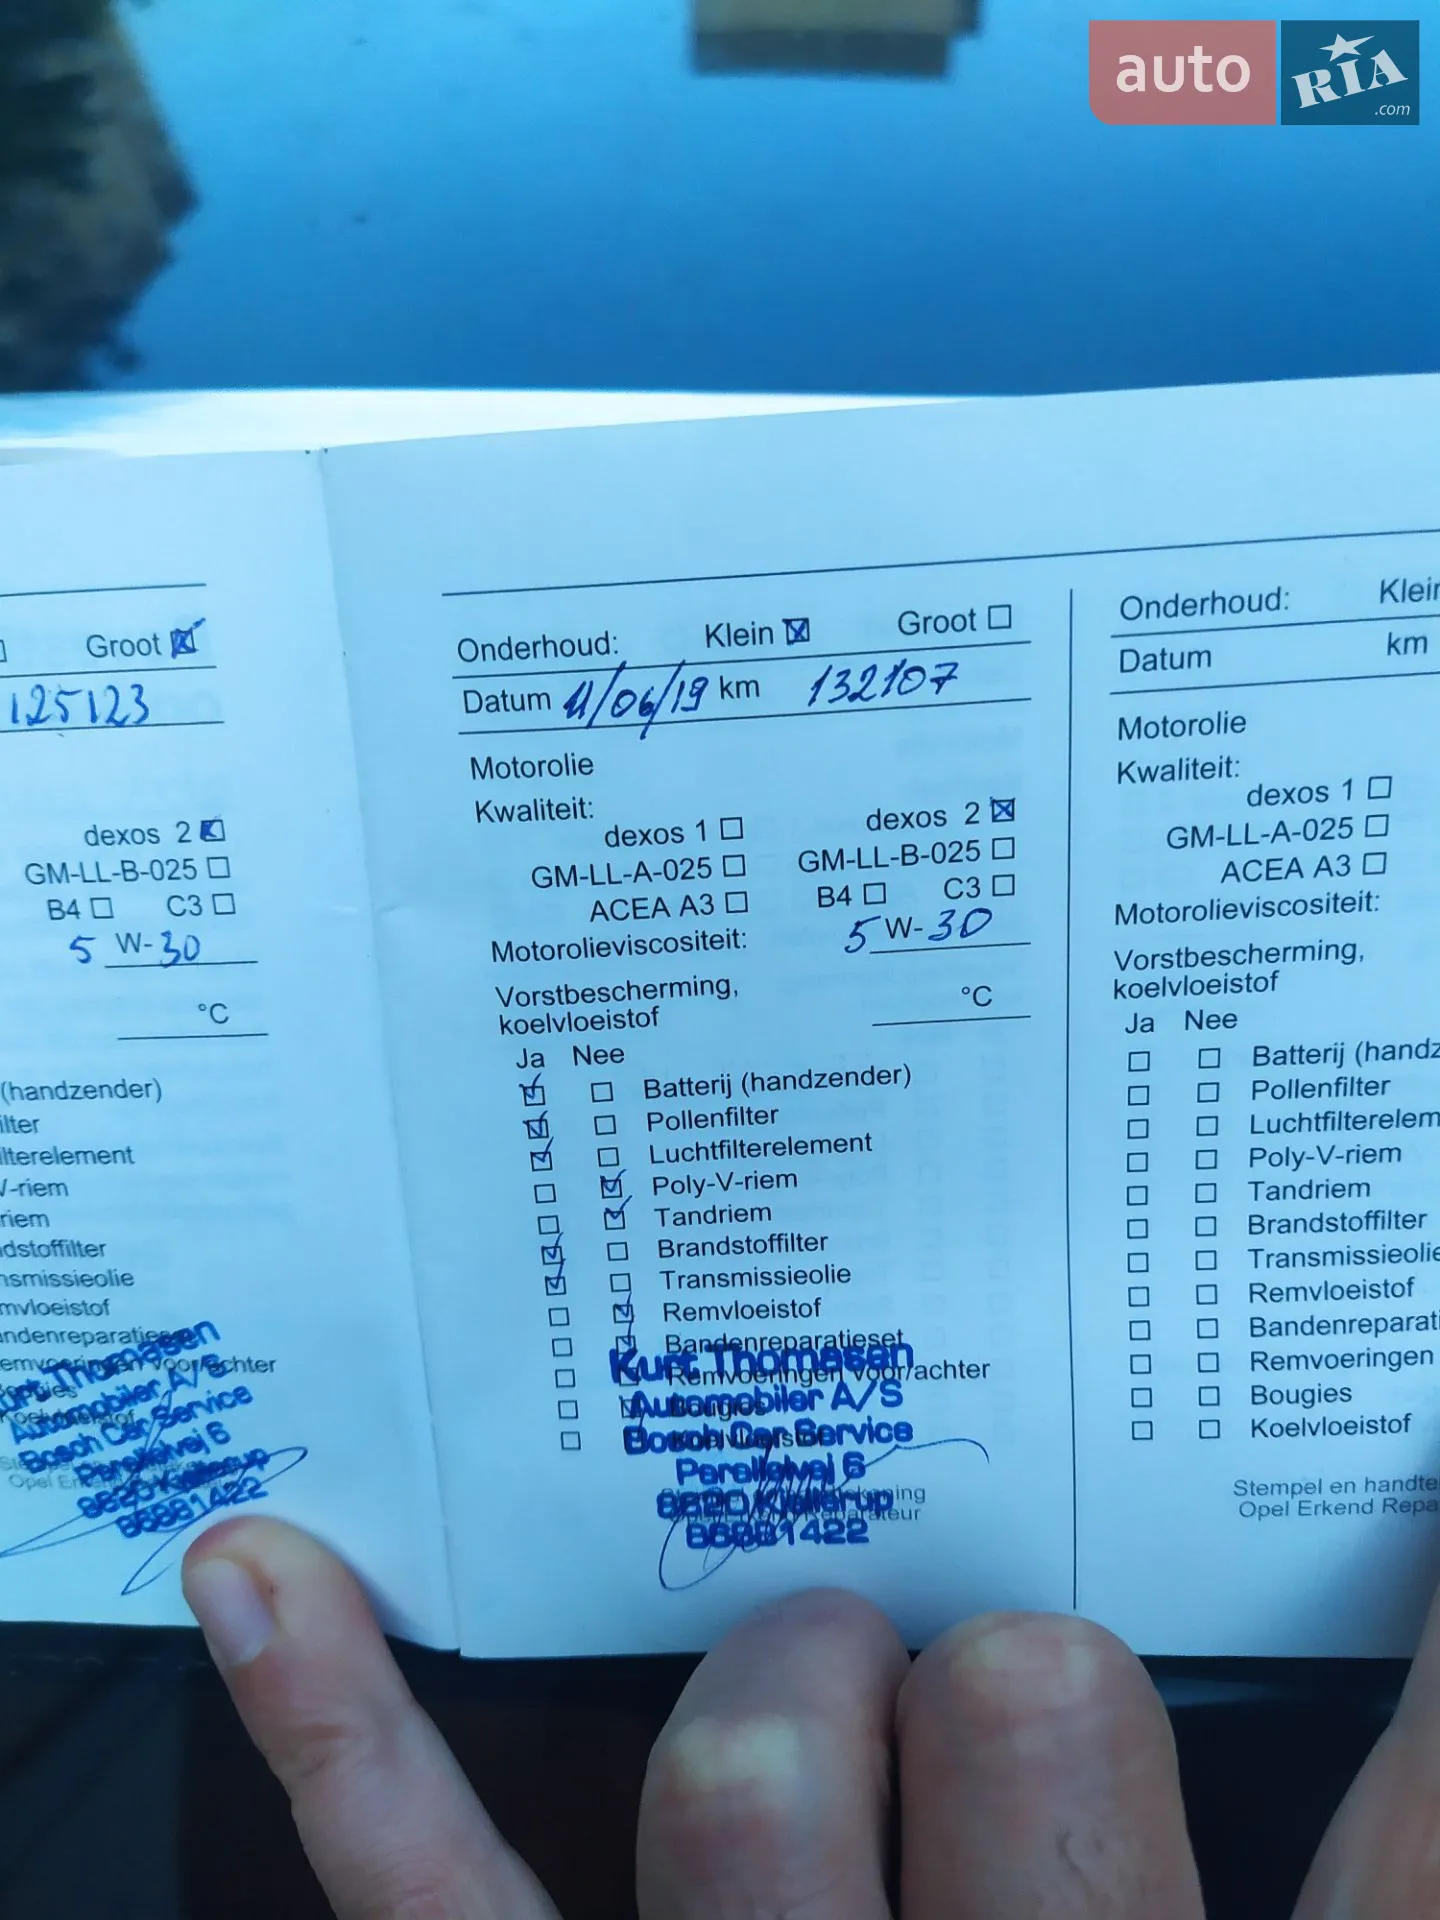 auto RIA.com
Groot
125123
dexos 2
GM-LL-B-025
B4 C3
5 W-30
°C
(handzender)
ilter
ilterelement
V-riem
riem
dstoffilter
nsmissieolie
mvloeistof
andenreparatieset
emvoeringen voor/achter
Kurt Thomasen
Automobiler A/S
Bosch Car Service
Parallelvej 6
8620 Kjellerup
86881422
Onderhoud: Klein Groot
Datum 11/06/19 km 132107
Motorolie
Kwaliteit:
dexos 1 dexos 2
GM-LL-A-025 GM-LL-B-025
ACEA A3 B4 C3
Motorolieviscositeit: 5 W-30
Vorstbescherming,
koelvloeistof °C
Ja Nee
Batterij (handzender)
Pollenfilter
Luchtfilterelement
Poly-V-riem
Tandriem
Brandstoffilter
Transmissieolie
Remvloeistof
Bandenreparatieset
Remvoeringen voor/achter
Bougies
Koelvloeistof
Kurt Thomasen
Automobiler A/S
Bosch Car Service
Parallelvej 6
8620 Kjellerup
86881422
Onderhoud: Klein
Datum km
Motorolie
Kwaliteit:
dexos 1
GM-LL-A-025
ACEA A3
Motorolieviscositeit:
Vorstbescherming,
koelvloeistof
Ja Nee
Batterij (handz
Pollenfilter
Luchtfilterelem
Poly-V-riem
Tandriem
Brandstoffilter
Transmissieolie
Remvloeistof
Bandenreparati
Remvoeringen
Bougies
Koelvloeistof
Stempel en handte
Opel Erkend Repa